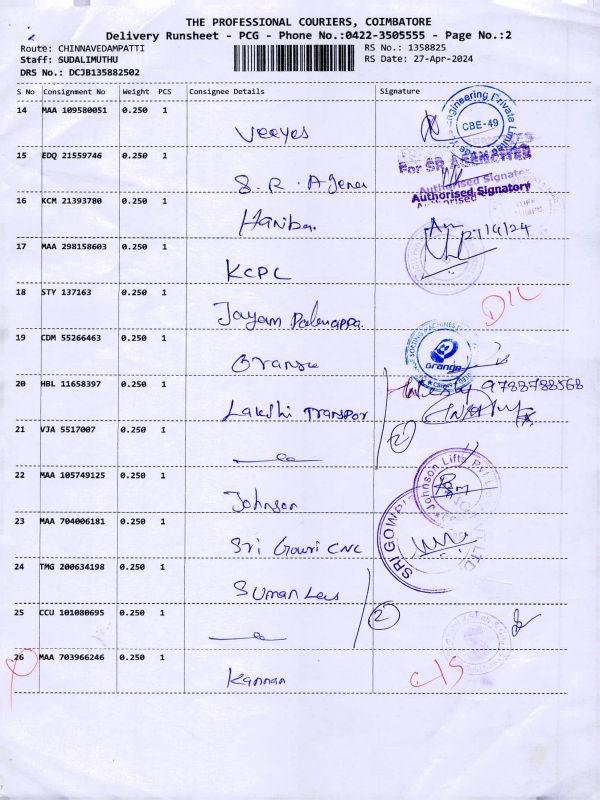 THE PROFESSIONAL COURIERS, COIMBATORE
Delivery Runsheet - PCG - Phone No.:0422-3505555 - Page No.:2
Route: CHINNAVEDAMPATTI RS No.: 1358825
Staff: SUDALIMUTHU RS Date: 27-Apr-2024
DRS No.: DCJB135882502
S No Consignment No Weight PCS Consignee Details Signature
14 MAA 109580051 0.250 1
Veeyes
Engineering Private Limited
CBE-49
15 EDQ 21559746 0.250 1
For SR AGENCIES
S.R. Agency
Authorised Signatory
Authorised Signatory
16 KCM 21393780 0.250 1
27/4/24
17 MAA 298158603 0.250 1
KCPL
18 STY 137163 0.250 1
D/L
Jayam
19 CDM 55266463 0.250 1
SORTING MACHINES
Orange
Orange
20 HBL 11658397 0.250 1
9788788568
Lakshi Transpor
21 VJA 5517007 0.250 1
2
22 MAA 105749125 0.250 1
Johnson Lifts Pvt
Johnson
23 MAA 704006181 0.250 1
SRI GOWRI
Sri Gowri CNC
24 TMG 200634198 0.250 1
Suman
25 CCU 101080695 0.250 1
2
26 MAA 703966246 0.250 1
Kannan